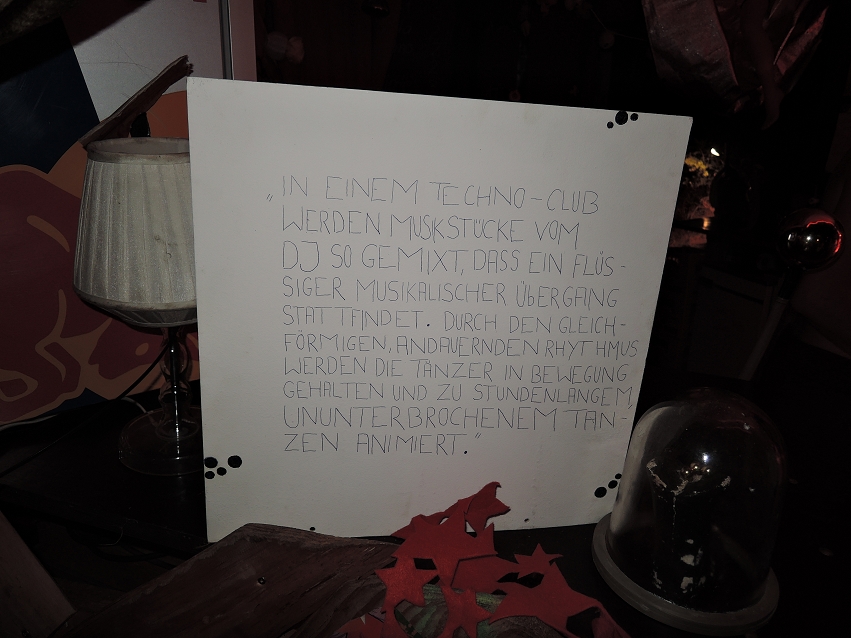 „IN EINEM TECHNO-CLUB
WERDEN MUSIKSTÜCKE VOM
DJ SO GEMIXT, DASS EIN FLÜS-
SIGER MUSIKALISCHER ÜBERGANG
STATTFINDET. DURCH DEN GLEICH-
FÖRMIGEN, ANDAUERNDEN RHYTHMUS
WERDEN DIE TÄNZER IN BEWEGUNG
GEHALTEN UND ZU STUNDENLANGEM,
UNUNTERBROCHENEM TAN-
ZEN ANIMIERT.“